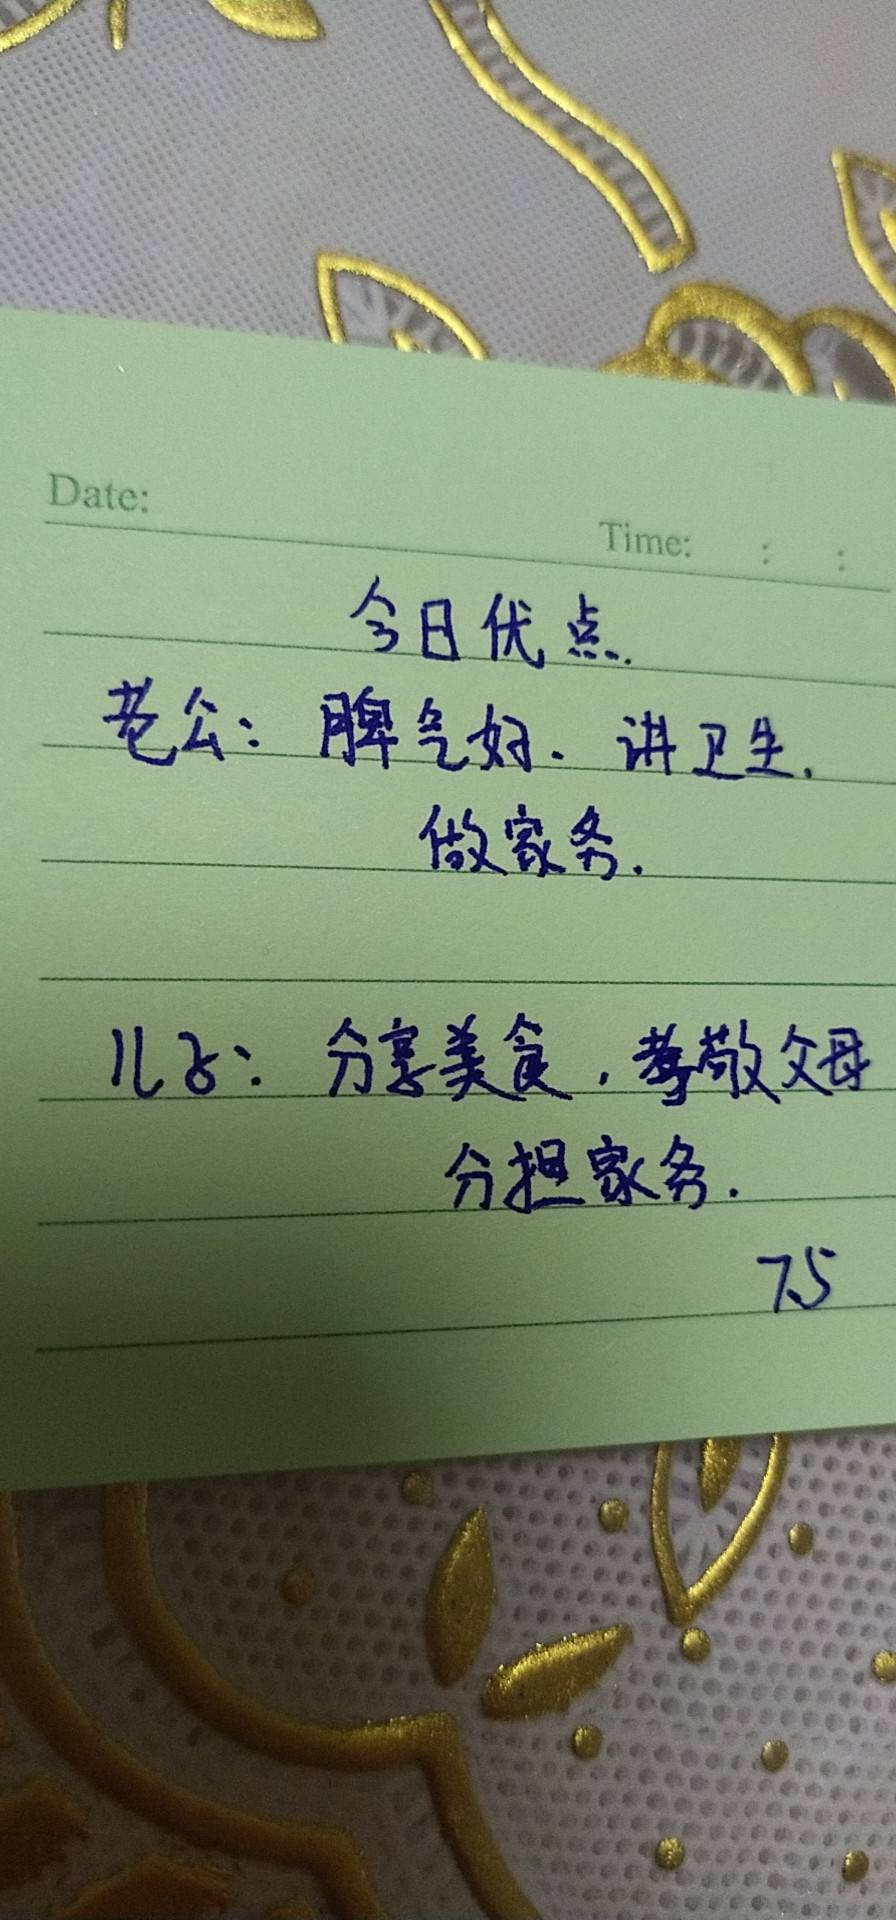 Date:
Time: : :
今日优点.
老公: 脾气好. 讲卫生.
做家务.
儿子: 分享美食, 尊敬父母
分担家务.
7.5